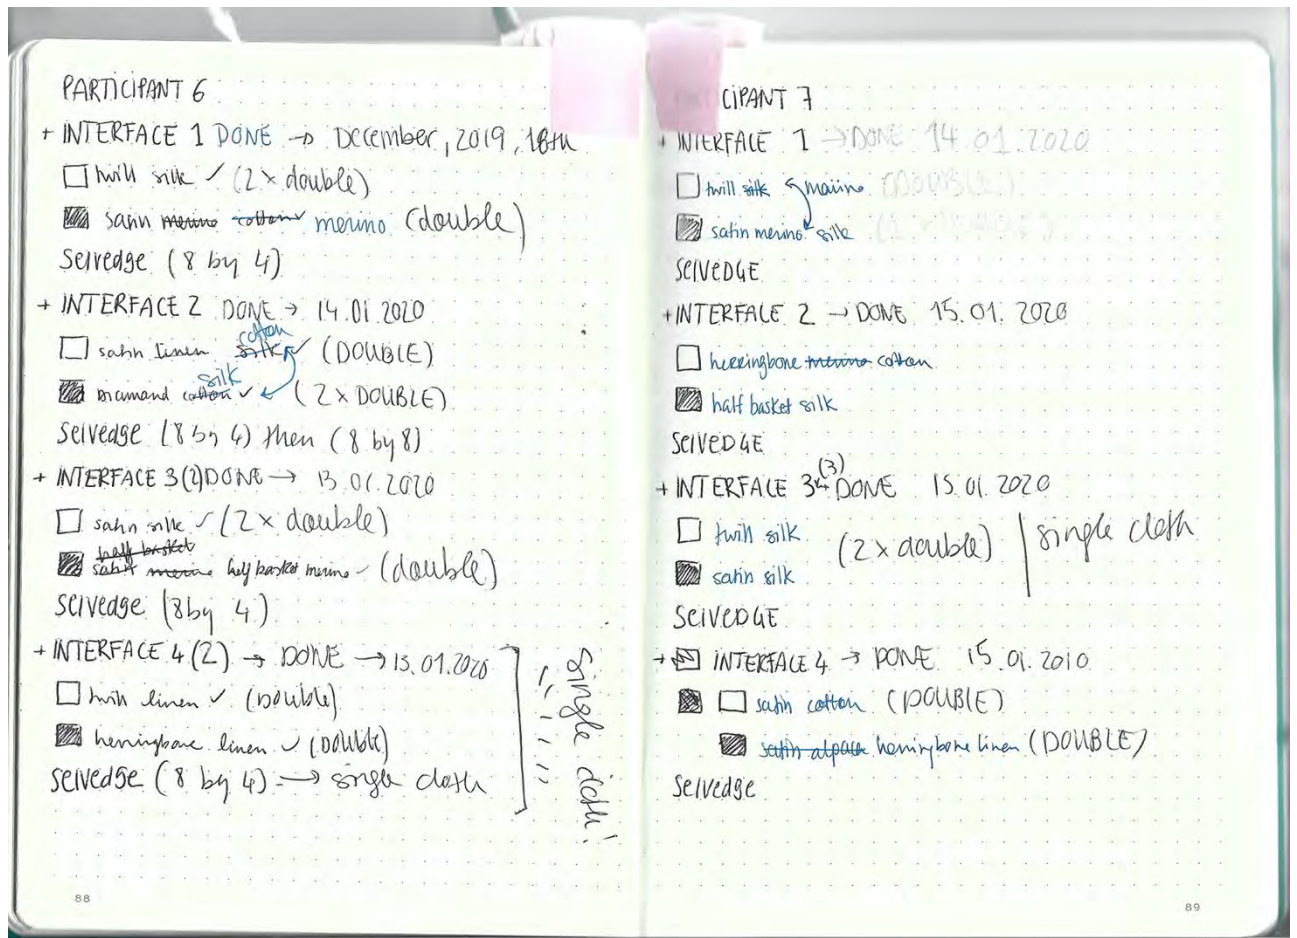 PARTICIPANT 6
+ INTERFACE 1 DONE → December, 2019, 18th
twill silk ✓ (2 x double)
satin merino cotton ✓ merino (double)
Selvedge (8 by 4)
+ INTERFACE 2 DONE → 14.01.2020
cotton
satin linen silk ✓ (DOUBLE)
silk
diamand cotton ✓ (2 x DOUBLE)
Selvedge (8 by 4) then (8 by 8)
+ INTERFACE 3 (2) DONE → 13.01.2020
satin silk ✓ (2 x double)
half basket
satin merino half basket merino ✓ (double)
Selvedge (8 by 4)
+ INTERFACE 4 (2) → DONE → 15.01.2020
twill linen ✓ (Double)
herringbone linen ✓ (Double)
Selvedge (8 by 4) → single cloth
single cloth!
88
CIPANT 7
+ INTERFACE 1 → DONE 14.01.2020
twill silk merino (DOUBLE)
satin merino silk
SELVEDGE
+ INTERFACE 2 → DONE 15.01.2020
herringbone merino cotton
half basket silk
SELVEDGE
(3)
+ INTERFACE 3 → DONE 15.01.2020
twill silk
(2 x double) | single cloth
satin silk
SELVEDGE
→ INTERFACE 4 → DONE 15.01.2010
satin cotton (DOUBLE)
satin alpaca herringbone linen (DOUBLE)
Selvedge
89